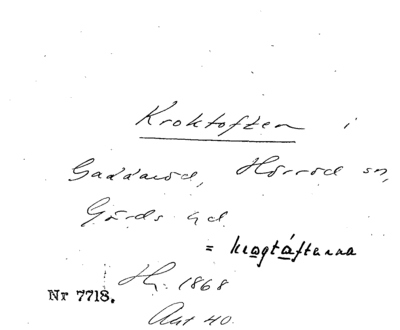 Kroktoften i
Gaddaröd, Hörröd sn,
Gärds hd.
= krogtåftenna
Hy. 1868
Nr 7718.
Akt 40.